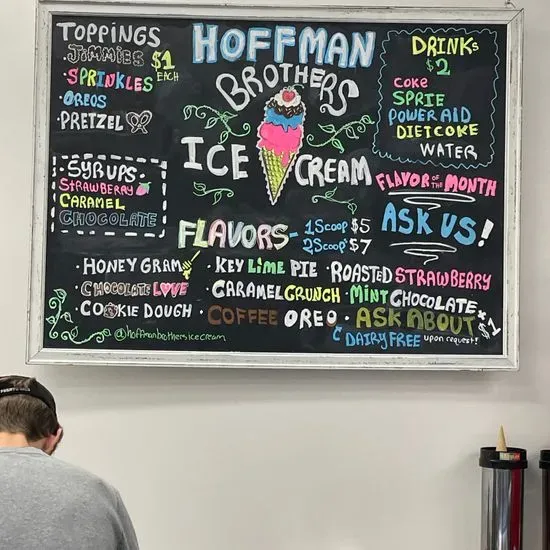 TOPPINGS
·JIMMIES $1
EACH
·SPRINKLES
·OREOS
·PRETZEL
·SYRUPS·
STRAWBERRY
CARAMEL
CHOCOLATE
HOFFMAN
BROTHERS
ICE CREAM
DRINKS
$2
COKE
SPRIE
POWERAID
DIET COKE
WATER
FLAVOR OF THE MONTH
ASK US!
FLAVORS- 1 SCOOP $5
2 SCOOP $7
·HONEY GRAM ·KEY LIME PIE ·ROASTED STRAWBERRY
·CHOCOLATE LOVE ·CARAMEL CRUNCH ·MINT CHOCOLATE
COOKIE DOUGH ·COFFEE OREO ·ASK ABOUT
DAIRY FREE upon request!
@hoffmanbrothersicecream